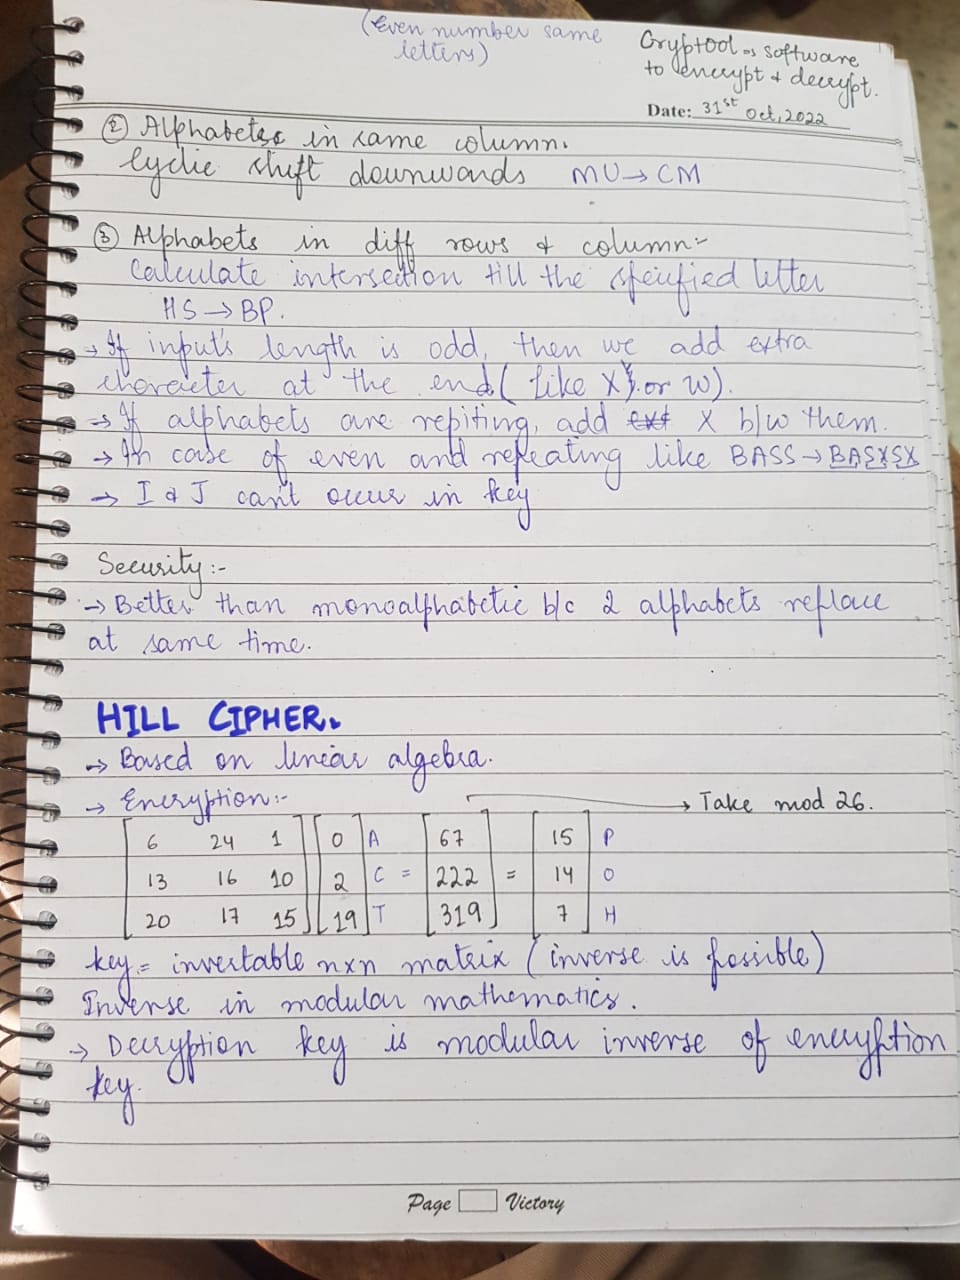 (Even number same
letters)
Cryptool → software
to encrypt & decrypt.
Date: 31st Oct, 2022
② Alphabets in same column.
Cyclic shift downwards MU → CM
③ Alphabets in diff rows & column:-
Calculate intersection till the specified letter
HS → BP.
→ If input's length is odd, then we add extra
character at the end (like X, or W).
→ If alphabets are repiting, add ext X b/w them.
→ In case of even and repeating like BASS → BASXSX
→ I & J can't occur in key
Security:-
→ Better than monoalphabetic b/c 2 alphabets replace
at same time.
HILL CIPHER.
→ Based on linear algebra.
→ Encryption:-
→ Take mod 26.
6 24 1 0 A 67 15 P
13 16 10 2 C = 222 = 14 O
20 17 15 19 T 319 7 H
key = invertable nxn matrix (inverse is possible)
Inverse in modular mathematics.
→ Decryption key is modular inverse of encryption
key.
Page Victory